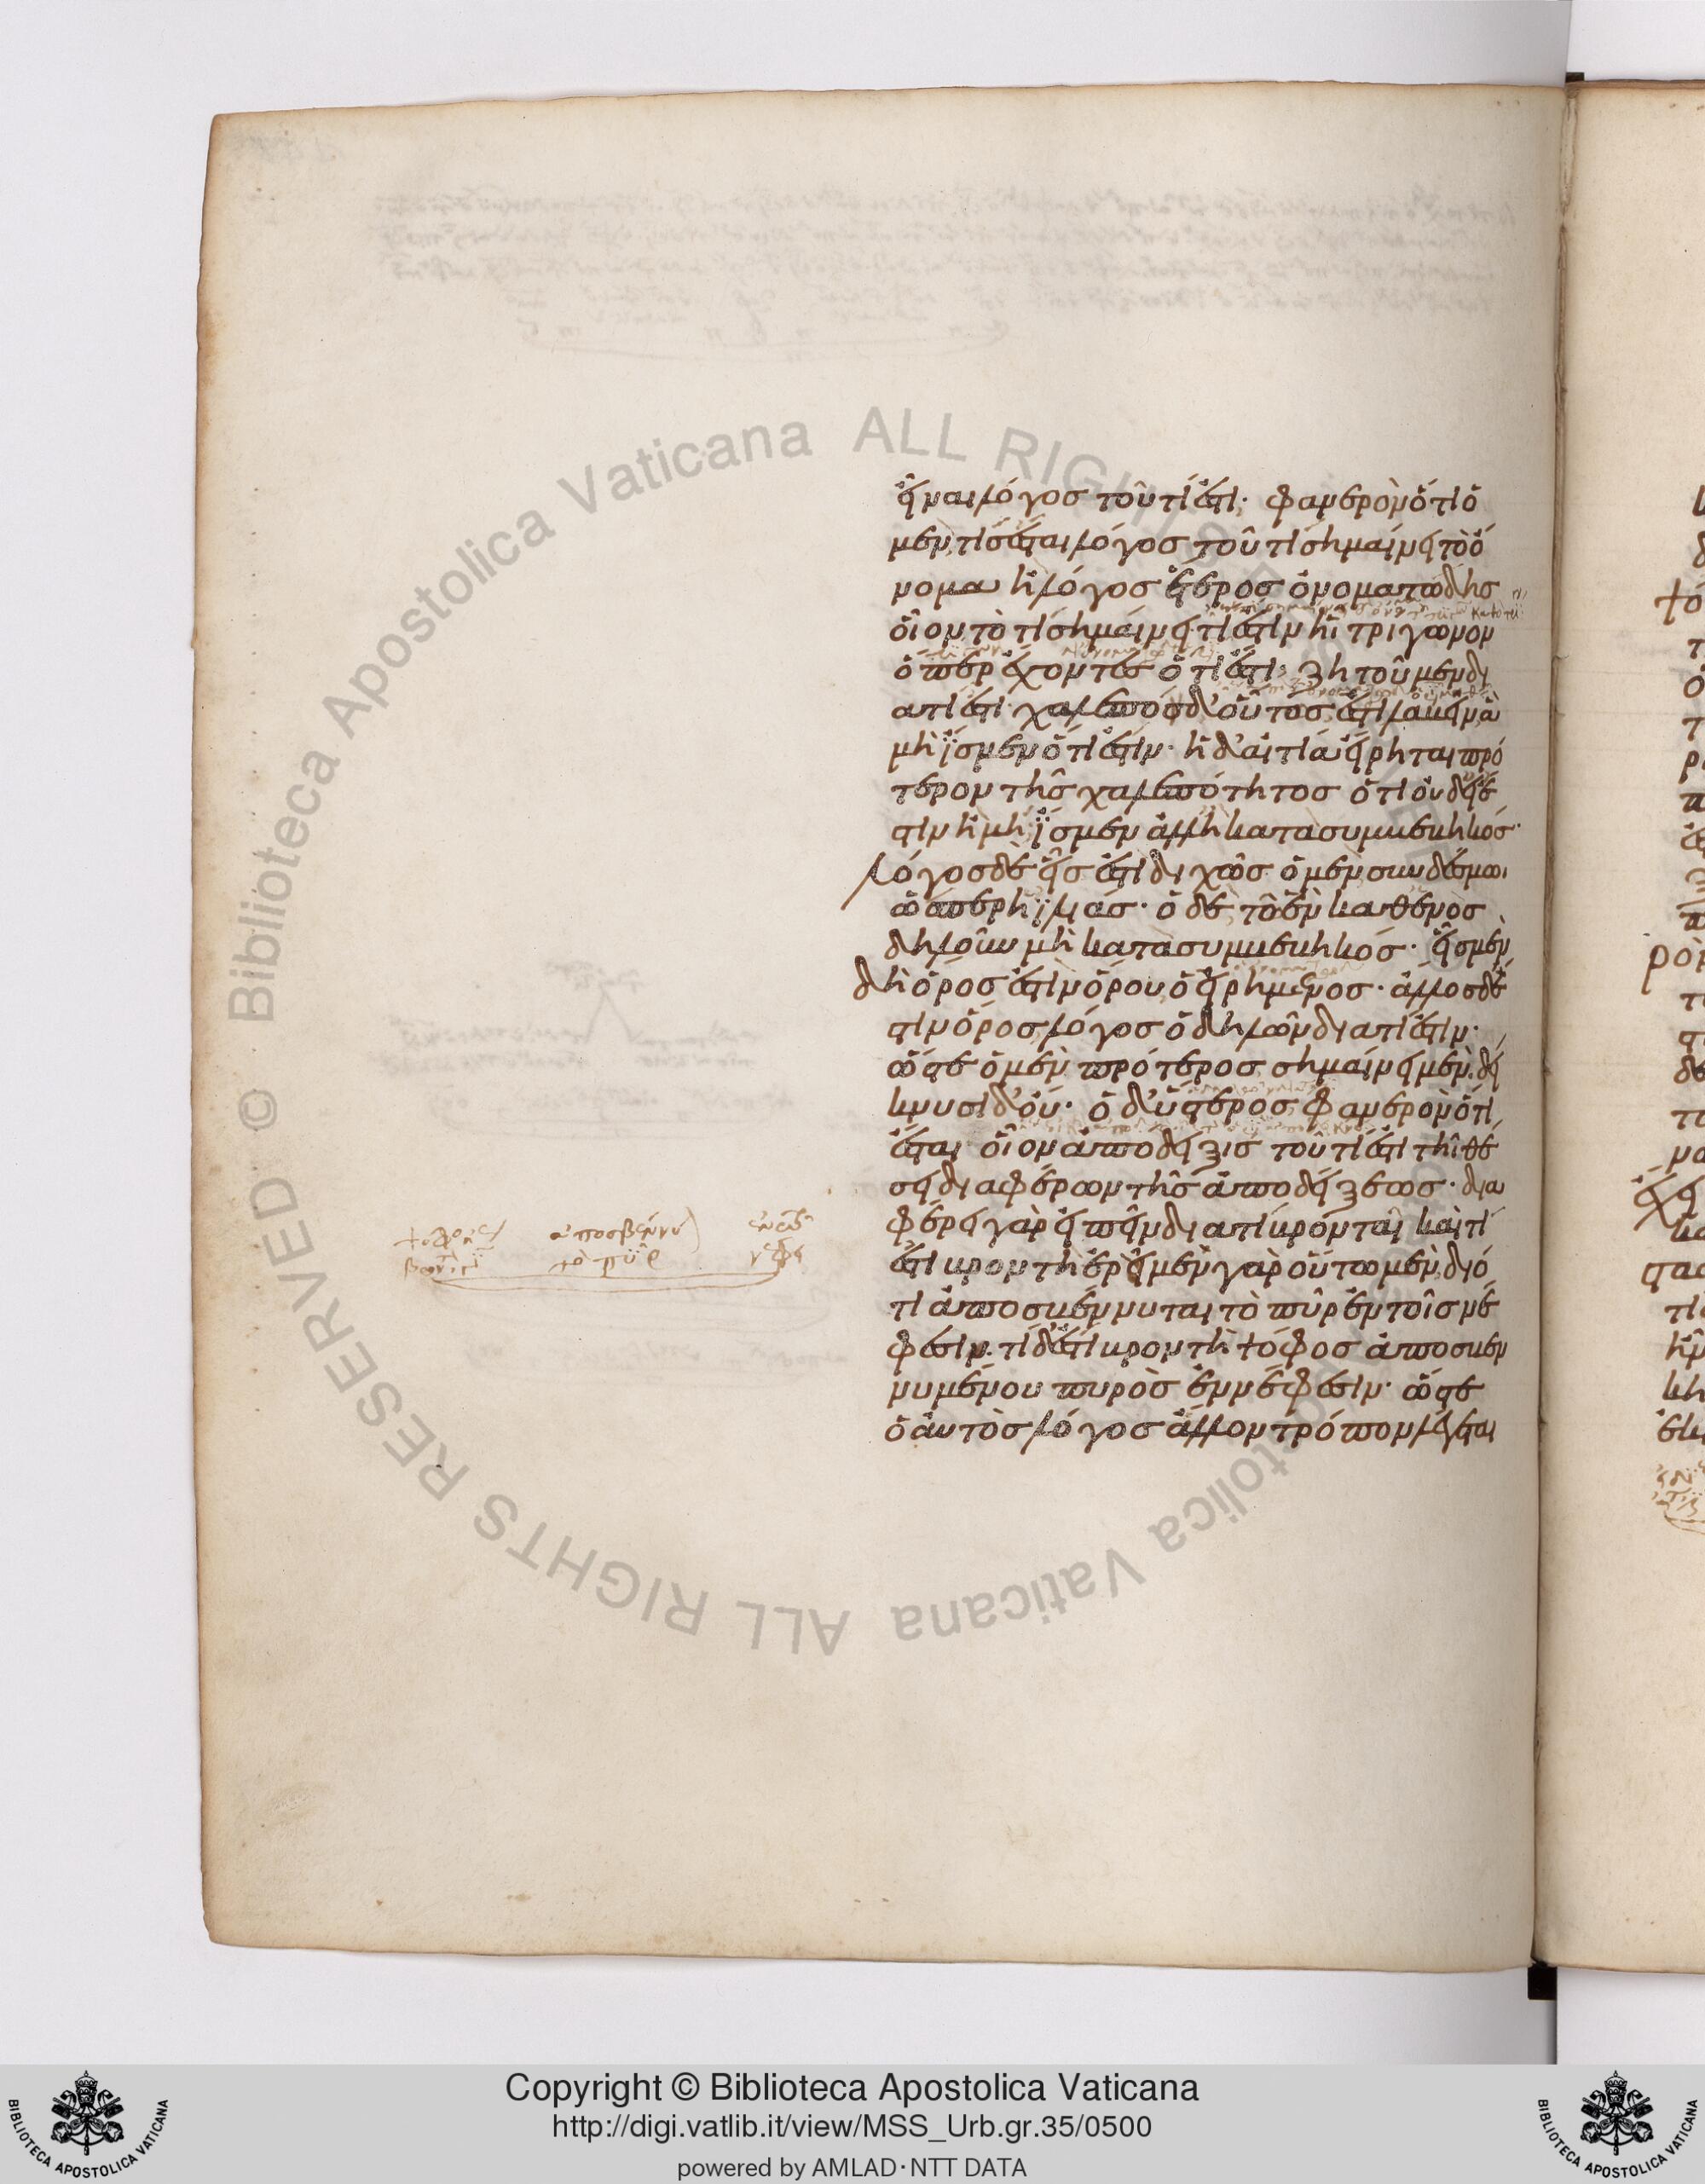 εἶναι λόγος τοῦ τί ἐστι· φανερὸν ὅτι ὁ
μέν τίς ἔσται λόγος τοῦ τί σημαίνει τὸ ὄ
νομα ἢ λόγος ἕτερος ὀνοματώδης
οἷον τὸ τί σημαίνει τί ἐστιν ἧι τρίγωνον
ὅπερ ἔχοντες ὅτι ἔστι, ζητοῦμεν δι
ατί ἐστι· χαλεπὸν δ' οὕτως ἐστὶ λαβεῖν ἃ
μὴ ἴσμεν ὅτι ἔστιν· ἡ δ' αἰτία εἴρηται πρό
τερον τῆς χαλεπότητος ὅτι οὐδ' εἰ ἔ
στιν ἢ μὴ ἴσμεν ἀλλ' ἢ κατὰ συμβεβηκός·
λόγος δὲ εἷς ἐστὶ διχῶς ὁ μὲν συνδέσμωι
ὥσπερ ἡ ἰλιάς· ὁ δὲ τῶ ἓν καθ' ἑνὸς
δηλοῦν μὴ κατὰ συμβεβηκός· εἷς μὲν
δὴ ὅρος ἐστὶν ὅρου ὁ εἰρημένος· ἄλλος δέ
στιν ὅρος λόγος ὁ δηλῶν διατί ἐστιν·
ὥστε ὁ μὲν πρότερος σημαίνει μὲν δεί
κνυσι δ' οὔ· ὁ δ' ὕστερος φανερὸν ὅτι
ἔσται οἷον ἀπόδειξις τοῦ τί ἐστι τῆι θέ
σει διαφέρων τῆς ἀποδείξεως· δια
φέρει γὰρ εἰπεῖν διατί βροντᾶι καὶ τί
ἐστι βροντή ἐρεῖ μὲν γὰρ οὕτω μὲν διό
τι ἀποσβέννυται τὸ πῦρ ἐν τοῖς νέ
φεσιν· τί δ' ἐστὶ βροντή ψόφος ἀποσβεν
νυμένου πυρὸς ἐν νέφεσιν· ὥστε
ὁ αὐτὸς λόγος ἄλλον τρόπον λέγεται
Copyright © Biblioteca Apostolica Vaticana
http://digi.vatlib.it/view/MSS_Urb.gr.35/0500
powered by AMLAD·NTT DATA
BIBLIOTECA APOSTOLICA VATICANA
BIBLIOTECA APOSTOLICA VATICANA
© Biblioteca Apostolica Vaticana ALL RIGHTS RESERVED